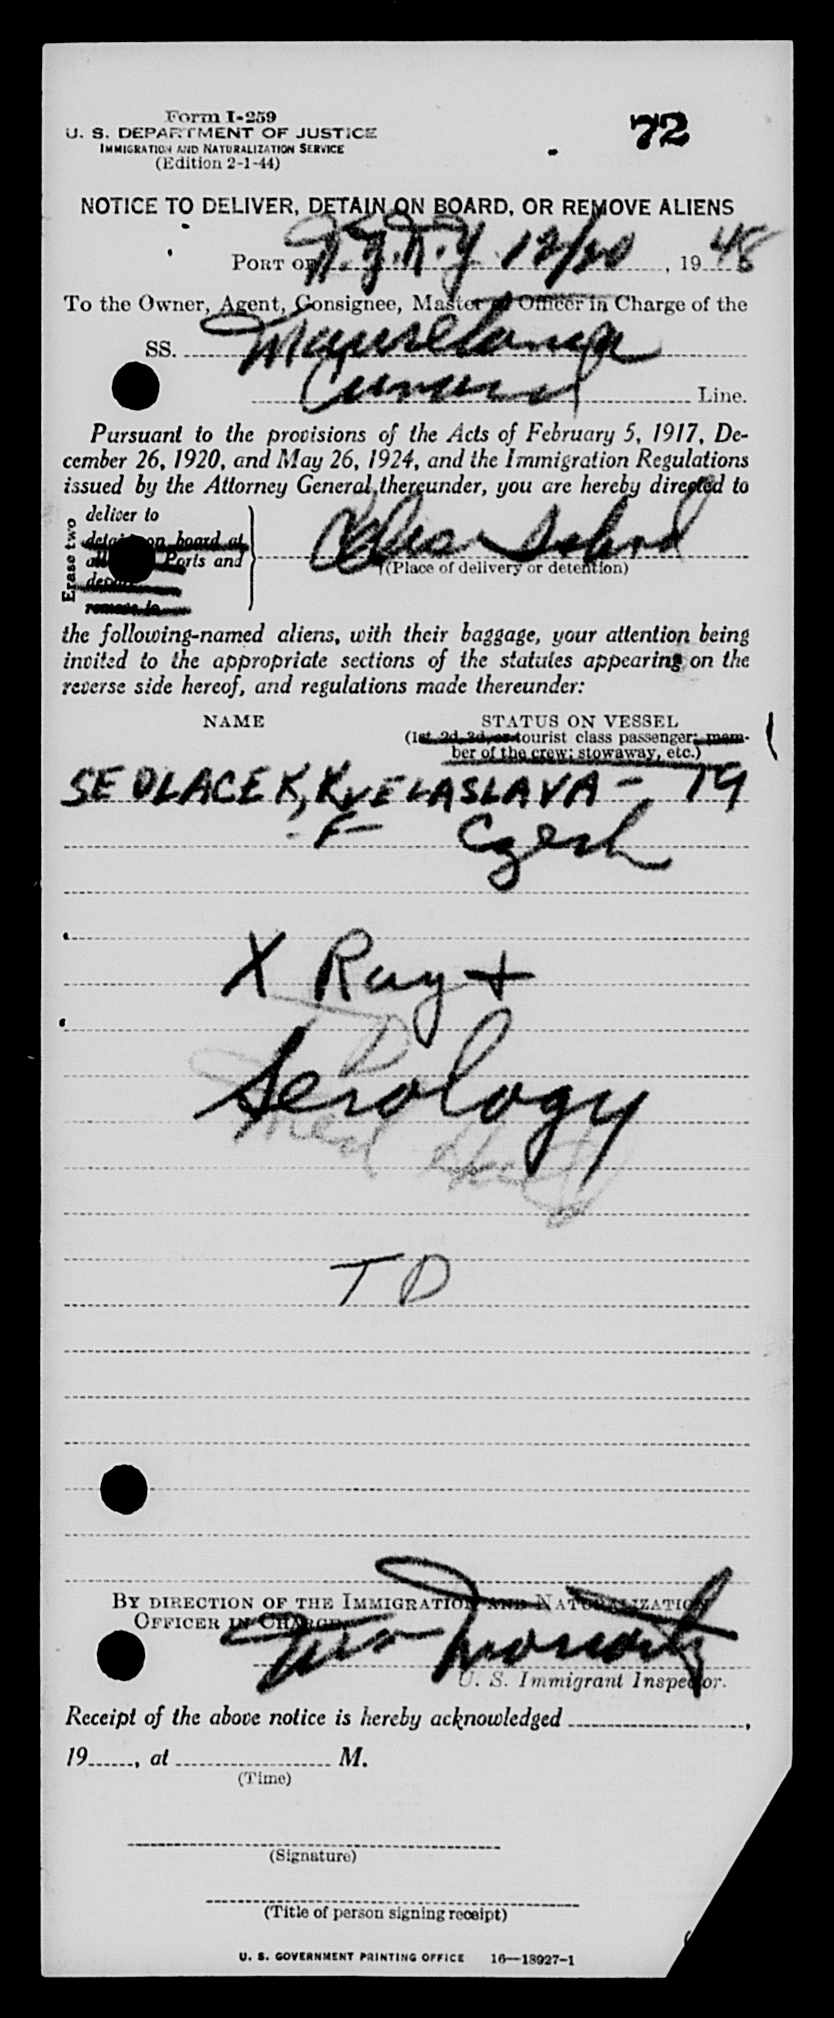 Form I-259
U. S. DEPARTMENT OF JUSTICE
IMMIGRATION AND NATURALIZATION SERVICE
(Edition 2-1-44)
72
NOTICE TO DELIVER, DETAIN ON BOARD, OR REMOVE ALIENS
PORT OF N.Y.N.Y. 12/20, 1948
To the Owner, Agent, Consignee, Master or Officer in Charge of the
SS. Mauretania
Cunard Line.
Pursuant to the provisions of the Acts of February 5, 1917, De-
cember 26, 1920, and May 26, 1924, and the Immigration Regulations
issued by the Attorney General thereunder, you are hereby directed to
Erase two
deliver to
detain on board at
all Ports and
remove to
Ellis Island
(Place of delivery or detention)
the following-named aliens, with their baggage, your attention being
invited to the appropriate sections of the statutes appearing on the
reverse side hereof, and regulations made thereunder:
NAME STATUS ON VESSEL
(1st, 2d, 3d, or tourist class passenger; mem-
ber of the crew; stowaway, etc.)
SEDLACEK, KVELASLAVA - 19
-F- Czech
X Ray +
Serology
Med
T D
BY DIRECTION OF THE IMMIGRATION AND NATURALIZATION
OFFICER IN CHARGE
U. S. Immigrant Inspector.
Receipt of the above notice is hereby acknowledged
19, at M.
(Time)
(Signature)
(Title of person signing receipt)
U. S. GOVERNMENT PRINTING OFFICE 16—18927-1